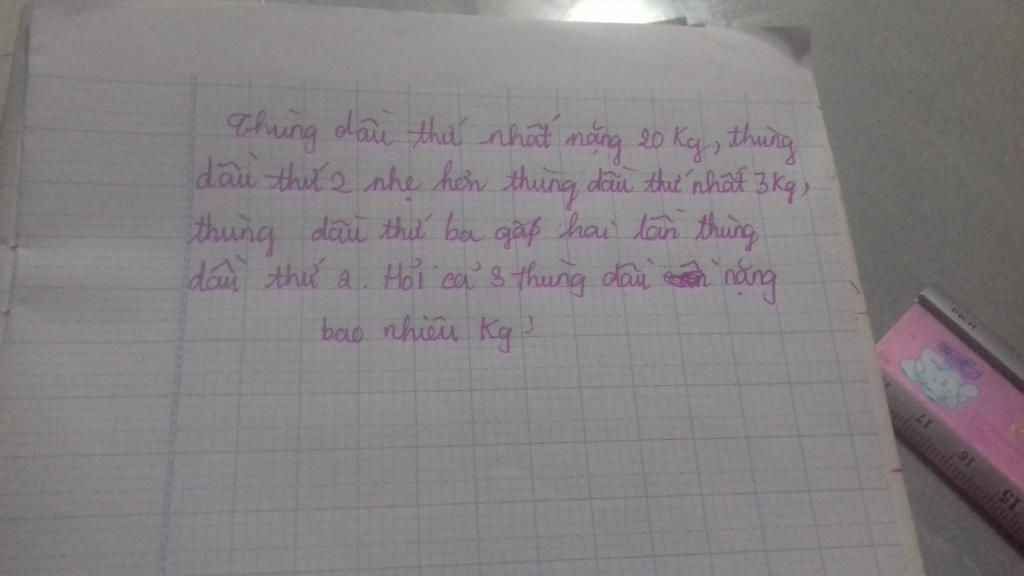 Thùng dầu thứ nhất nặng 20 Kg, thùng
dầu thứ 2 nhẹ hơn thùng dầu thứ nhất 3 Kg,
thùng dầu thứ ba gấp hai lần thùng
dầu thứ 2. Hỏi cả 3 thùng dầu nặng
bao nhiêu Kg?
17
16
15